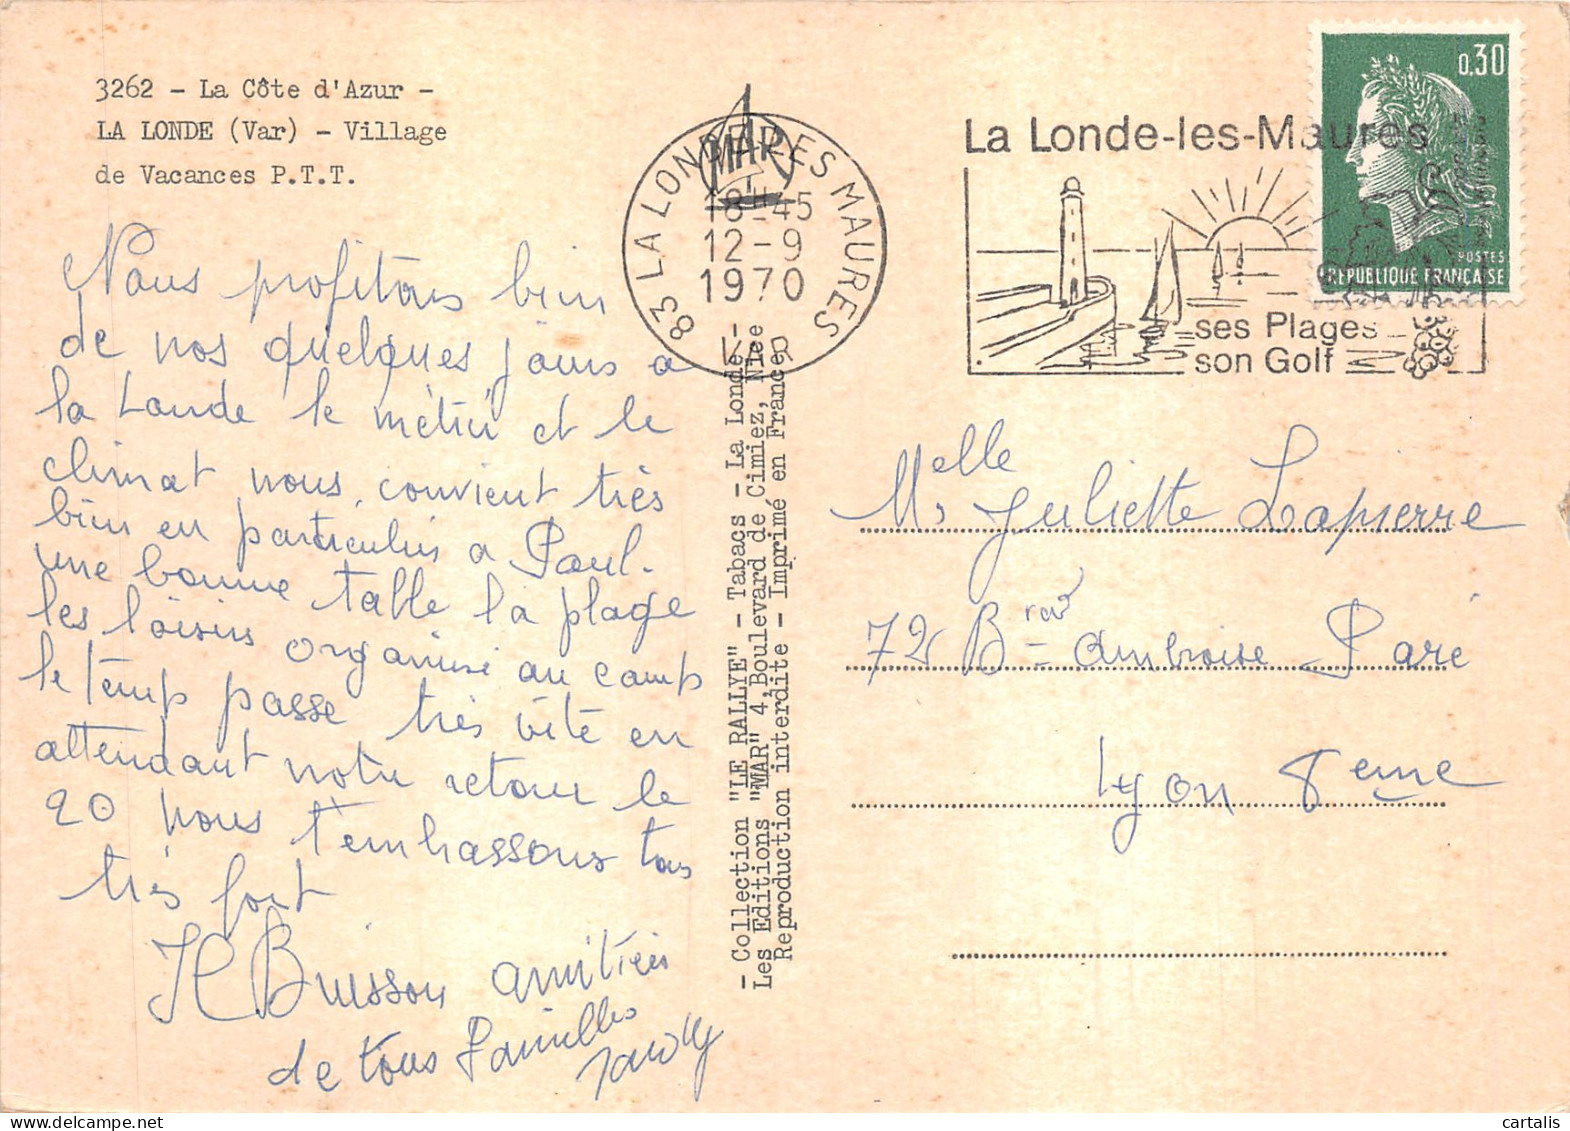 3262 - La Côte d'Azur -
LA LONDE (Var) - Village
de Vacances P.T.T.
Nous profitons bien
de nos quelques jours a
la Londe le météo et le
climat nous convient très
bien en particulier a Paul.
une bonne table la plage
les loisirs organisé au camp
le temps passe très vite en
attendant notre retour le
20 nous t'embrassons tous
très fort
Buisson amitiés
de tous Familles
MAR
83 LA LONDE-LES MAURES
18H45
12-9
1970
VAR
- Collection "LE RALLYE" - Tabacs - La Londe -
Les Editions "MAR" 4, Boulevard de Cimiez, Nice
Reproduction interdite - Imprimé en France
La Londe-les-Maures
ses Plages
son Golf
0,30
POSTES
REPUBLIQUE FRANÇAISE
Melle Juliette Lapierre
72 B Ambroise Paré
Lyon 8eme
cartalis